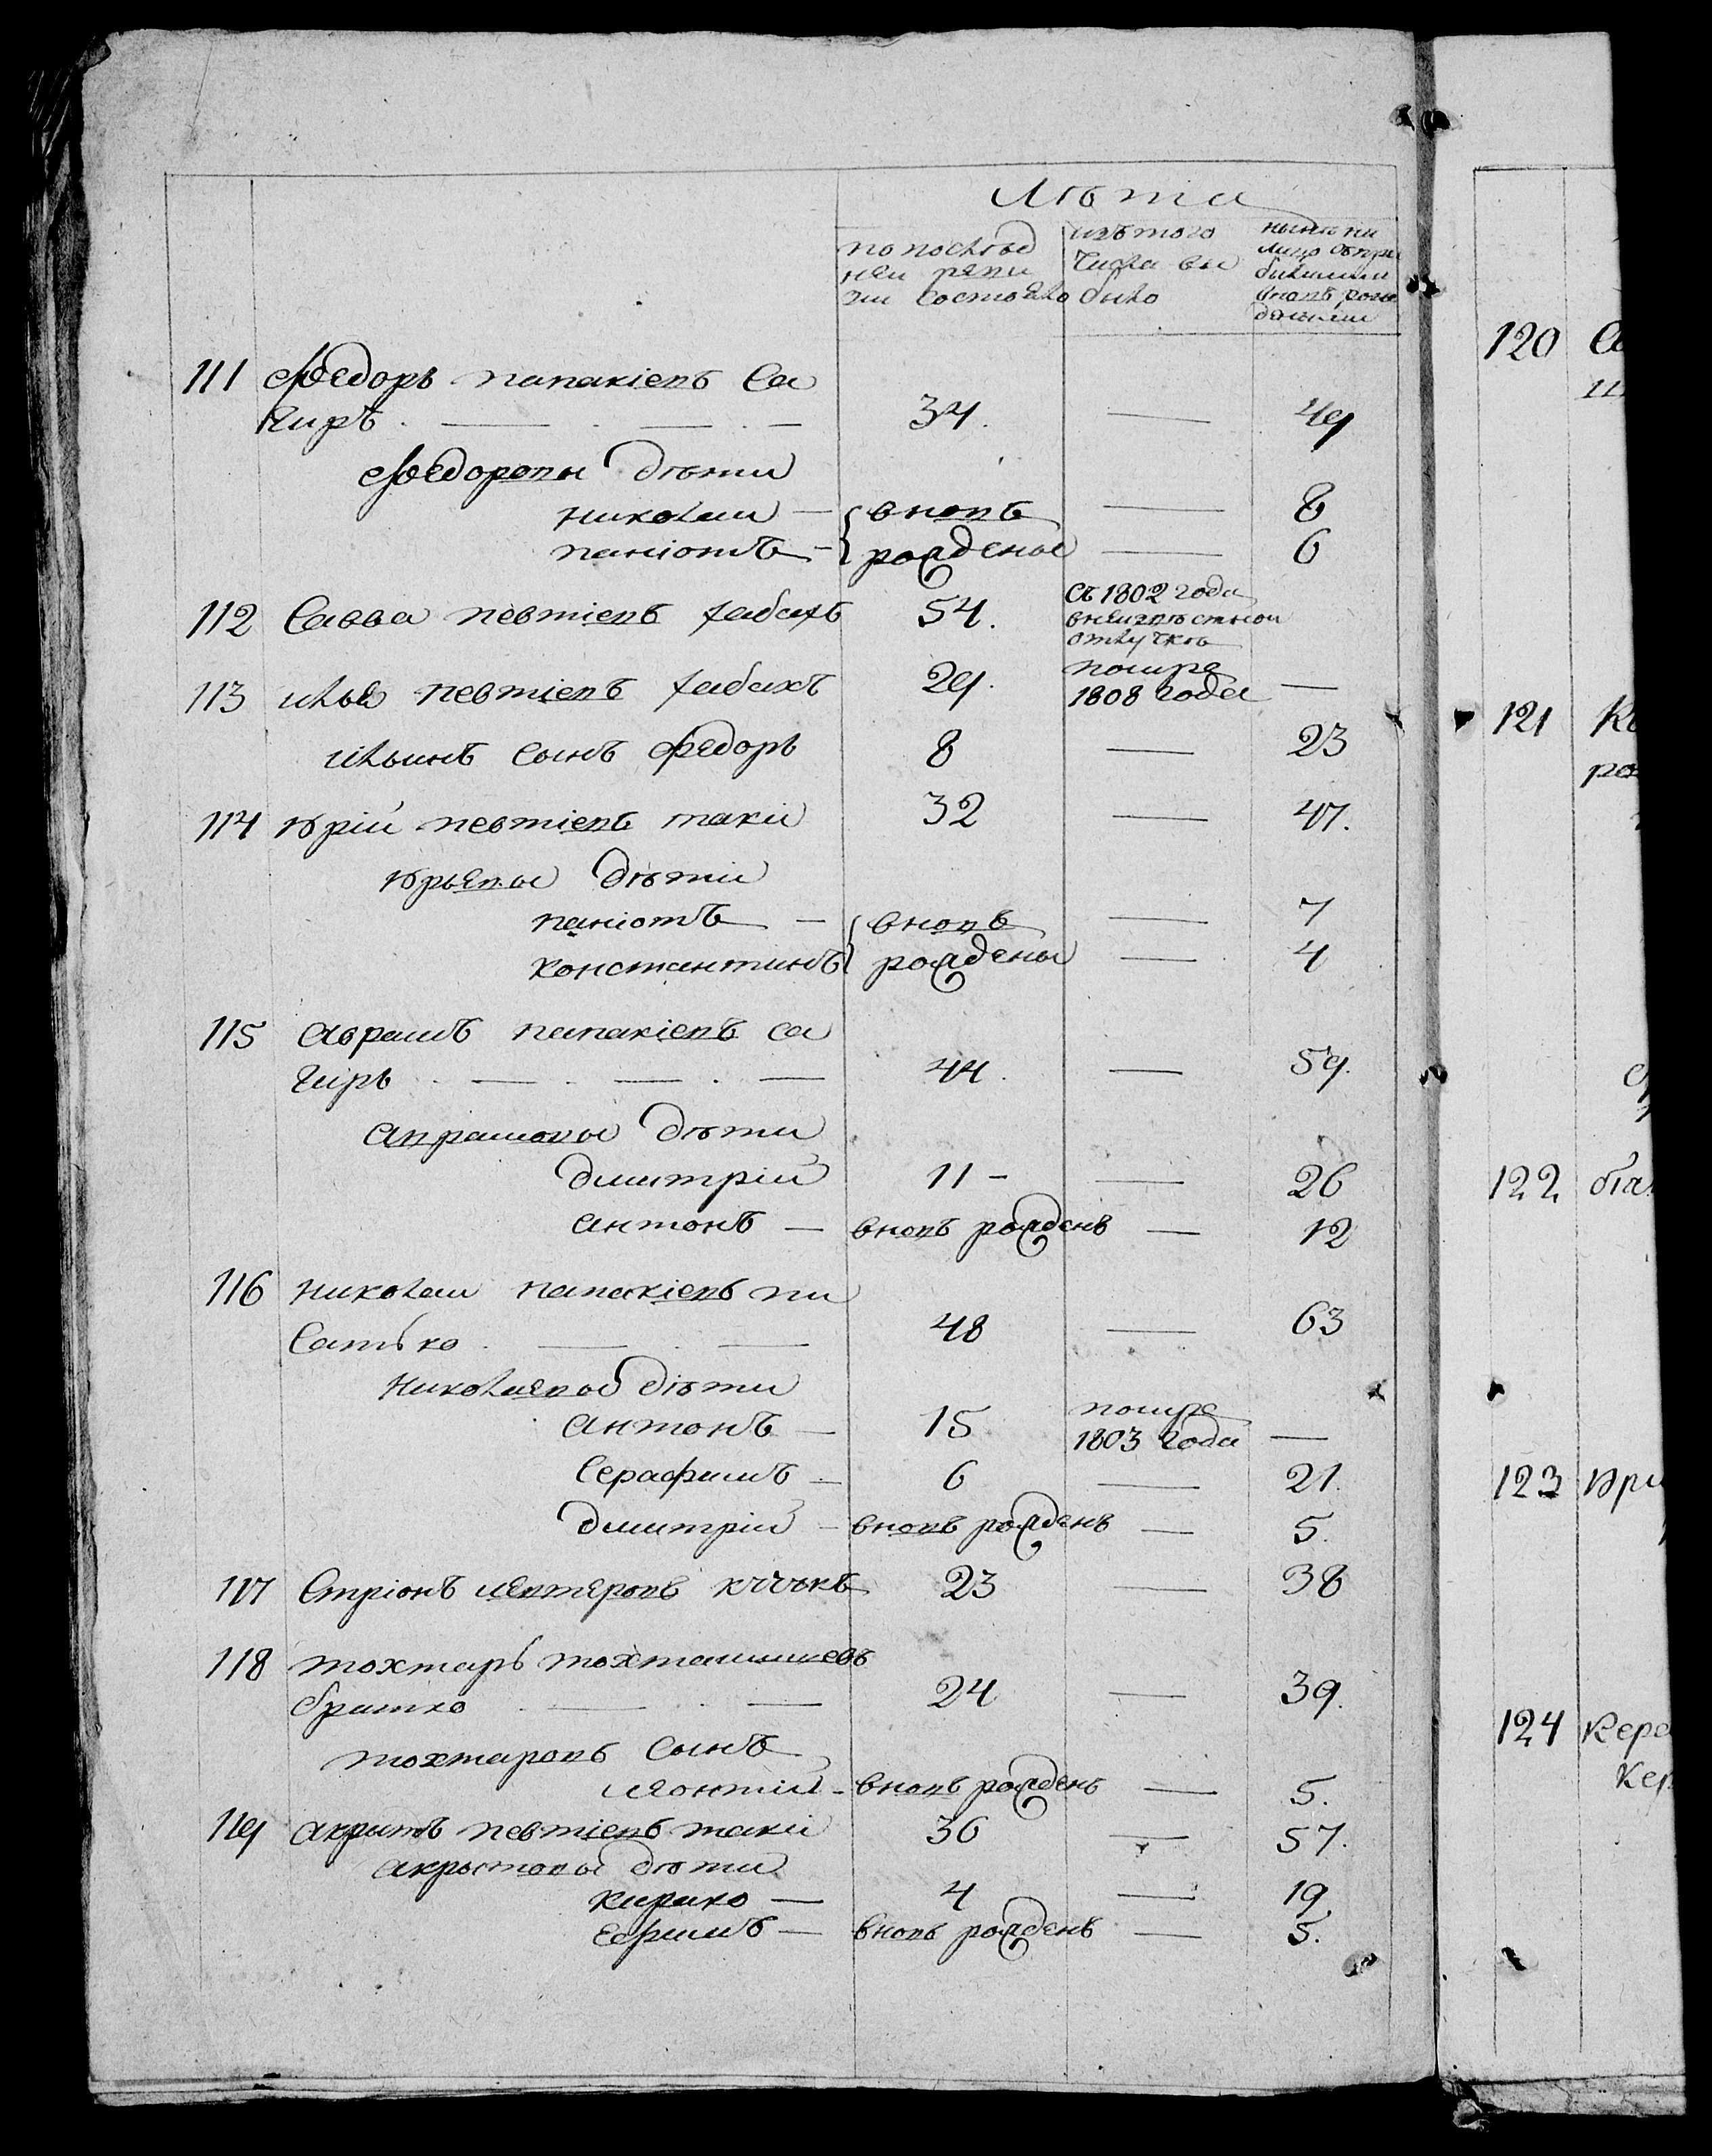 Лѣта
по послѣд
ней реви
зии состояло
изъ того
числа вы
было
нынѣ на
лицо съ при
былыми
вновь рож
денными
111 Федоръ папакіевъ Са
чиръ 34. — 49
Федоровы дѣти
николаи — вновь — 8
паніотъ — рождены — 6
112 Савва певтіевъ хабахъ 54. съ 1802 года
в неизвѣстной
отлучкѣ
113 илья певтіевъ хабахъ 29. помре
1808 года —
ильинъ сынъ Федоръ 8 — 23
114 юрій певтіевъ таки 32 — 47.
юрьевы дѣти
паніотъ — вновь — 7
константинъ рождены — 4
115 аврамъ папакіевъ са
чиръ 44. — 59.
аврамовы дѣти
дмитрій 11 — — 26
антонъ — вновь рожденъ — 12
116 николаи папакіевъ пи
Сатко 48 — 63
николаевы дѣти
антонъ — 15 помре
1803 года —
Серафимъ — 6 — 21.
дмитрій — вновь рожденъ — 5.
117 Стріонъ 23 — 38
118 тохтаръ тохтамышевъ
братко 24 — 39.
тохтаровъ сынъ
леонтій — вновь рожденъ — 5.
119 акритъ певтіевъ таки 36 — 57.
акрытовы дѣти
кирико — 4 — 19.
ефимъ — вновь рожденъ — 5.
120
121
122
123 юри
124 кере
кер